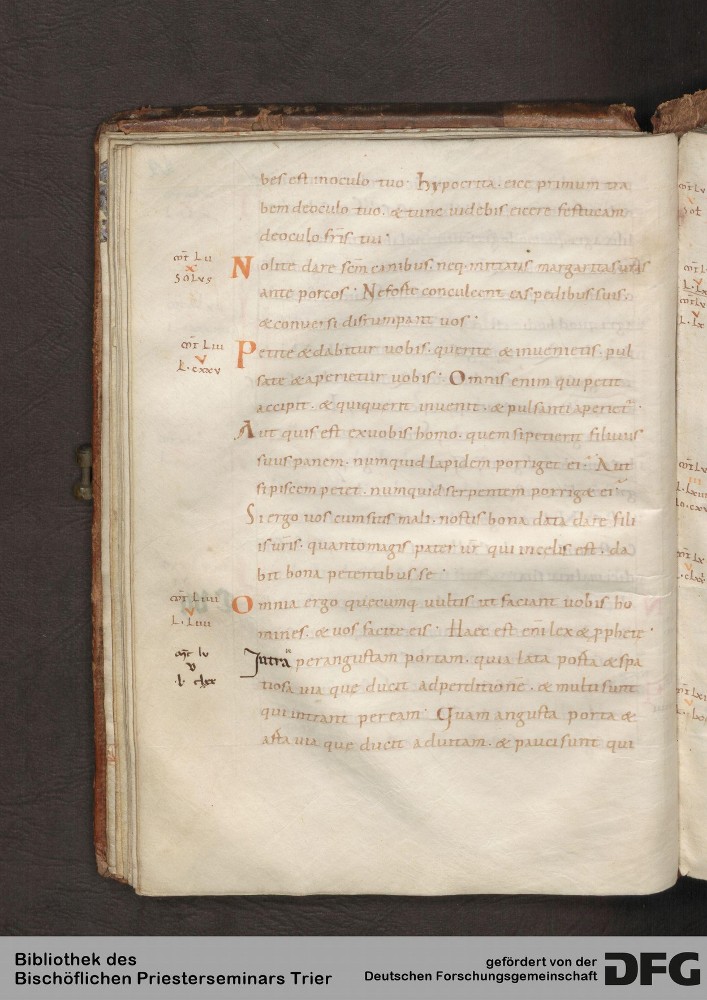 bes est in oculo tuo. hypocrita. eice primum tra
bem de oculo tuo. & tunc uidebis eicere festucam
de oculo fr̄is tui.
mt̄ Lii
x
solus
Nolite dare sc̄m canibus. neq. mittatis margaritas ur̄as
ante porcos. Ne forte conculcent eas pedibus suis.
& conuersi disrumpant uos.
mt̄ Liii
v
L. cxxv
Petite & dabitur uobis. querite & inuenietis. pul
sate & aperietur uobis. Omnis enim qui petit
accipit. & qui querit inuenit. & pulsanti aperiet̄.
Aut quis est ex uobis homo. quem si petierit filius
suus panem. numquid lapidem porriget ei. Aut
si piscem petet. numquid serpentem porrig& ei
Si ergo uos cum sitis mali. nostis bona data dare fili
is ur̄is. quanto magis pater ur̄ qui in celis est. da
bit bona petentibus se.
mt̄ Liiii
v
L. Liiii
Omnia ergo quecumq. uultis ut faciant uobis ho
mines. & uos facite eis. Haec est eni lex & p̱phete.
mt̄ lv
v
Intra per angustam portam. quia lata porta & spa
tiosa uia que ducit ad perditionē. & multi sunt
qui intrant per eam. Quam angusta porta &
arta uia que ducit ad uitam. & pauci sunt qui
Bibliothek des
Bischöflichen Priesterseminars Trier
gefördert von der
Deutschen Forschungsgemeinschaft
DFG